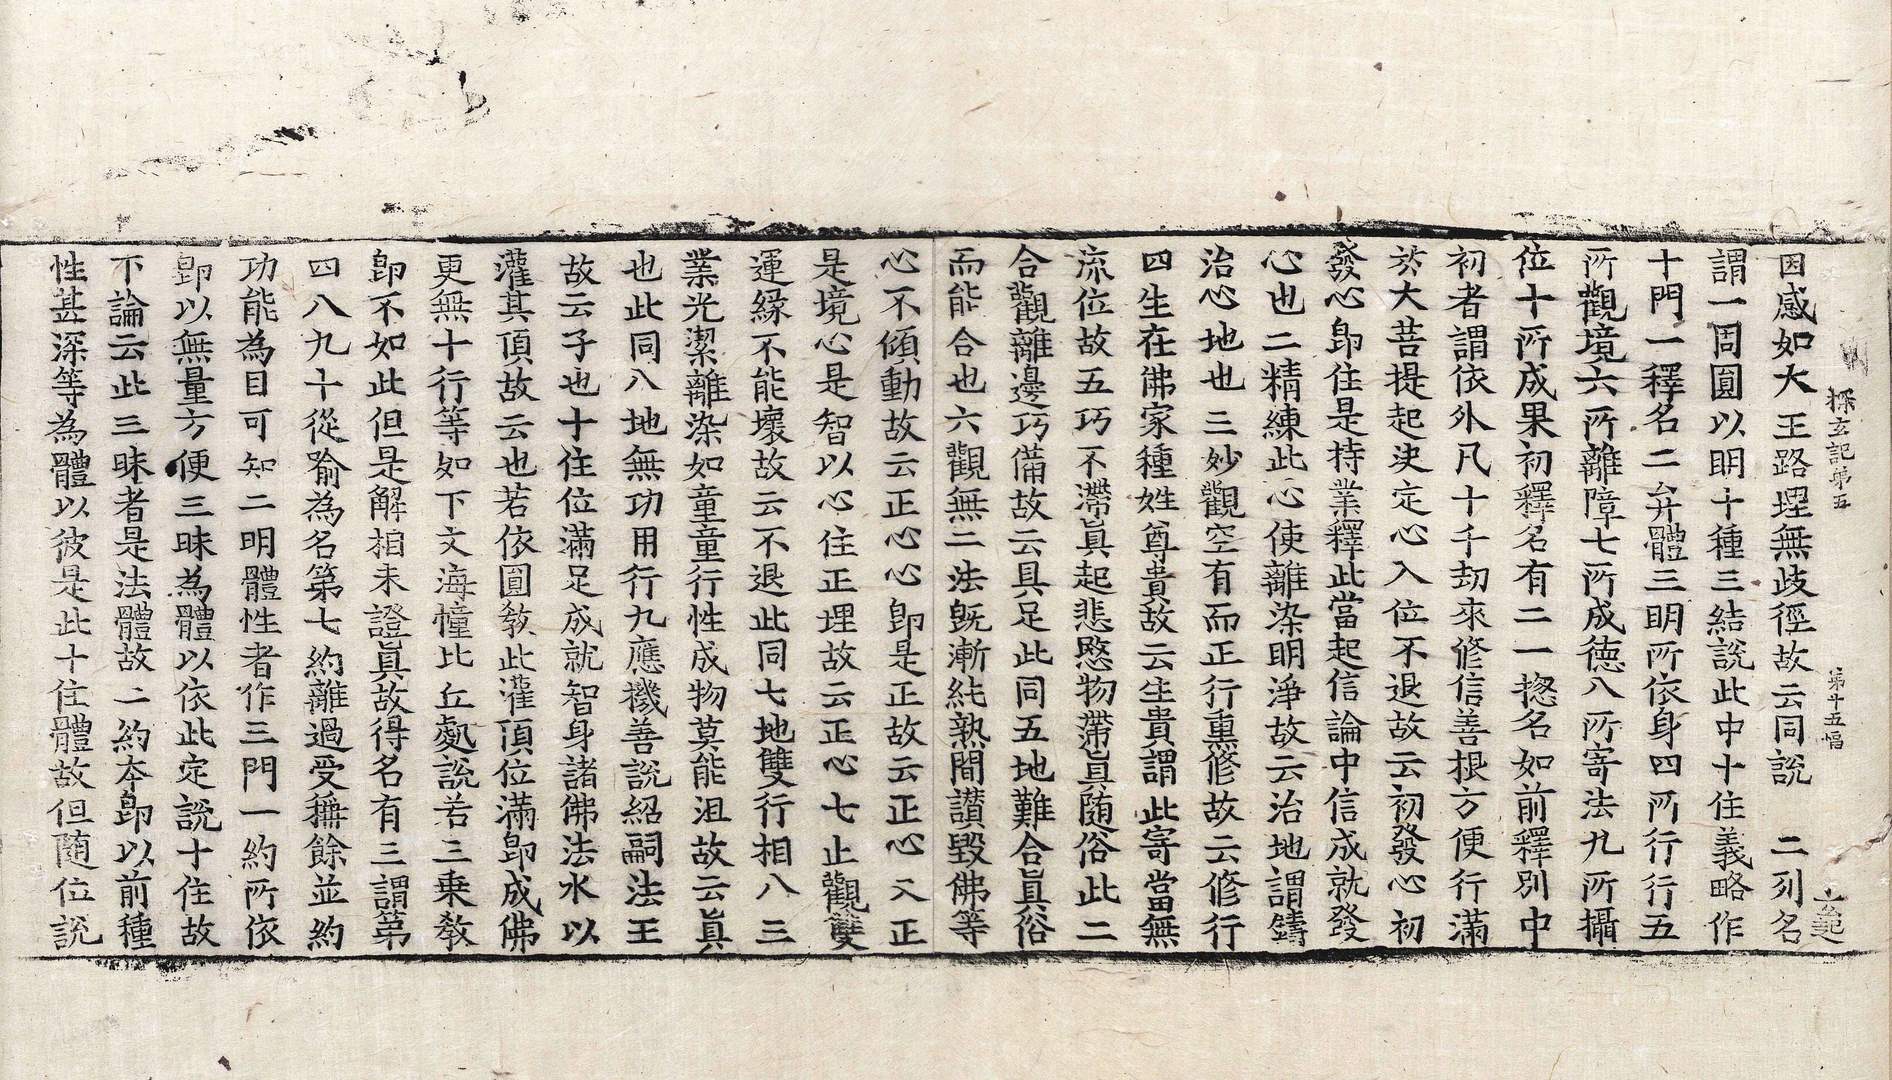 探玄記第五　第十五幅
因感如大王路理無歧徑故云同說　二列名
謂一周圓以明十種三結說此中十住義略作
十門一釋名二弁體三明所依身四所行行五
所觀境六所離障七所成德八所寄法九所攝
位十所成果初釋名有二一揔名如前釋別中
初者謂依外凡十千劫來修信善根方便行滿
於大菩提起决定心入位不退故云初發心初
發心即住是持業釋此當起信論中信成就發
心也二精練此心使離染明淨故云治地謂鑄
治心地也三妙觀空有而正行熏修故云修行
四生在佛家種姓尊貴故云生貴謂此寄當無
流位故五巧不滯眞起悲愍物滯眞随俗此二
合觀離邊巧備故云具足此同五地難合眞俗
而能合也六觀無二法旣漸純熟聞讃毀佛等
心不傾動故云正心心即是正故云正心又正
是境心是智以心住正理故云正心七止觀雙
運緣不能壞故云不退此同七地雙行相八三
業光潔離染如童童行性成物莫能沮故云眞
也此同八地無功用行九應機善說紹嗣法王
故云子也十住位滿足成就智身諸佛法水以
灌其頂故云也若依圓教此灌頂位滿即成佛
更無十行等如下文海幢比丘處說若三乗教
即不如此但是解相未證眞故得名有三謂第
四八九十從喻為名第七約離過受稱餘並約
功能為目可知二明體性者作三門一約所依
即以無量方便三昧為體以依此定說十住故
下論云此三昧者是法體故二約本即以前種
性甚深等為體以彼是此十住體故但随位說